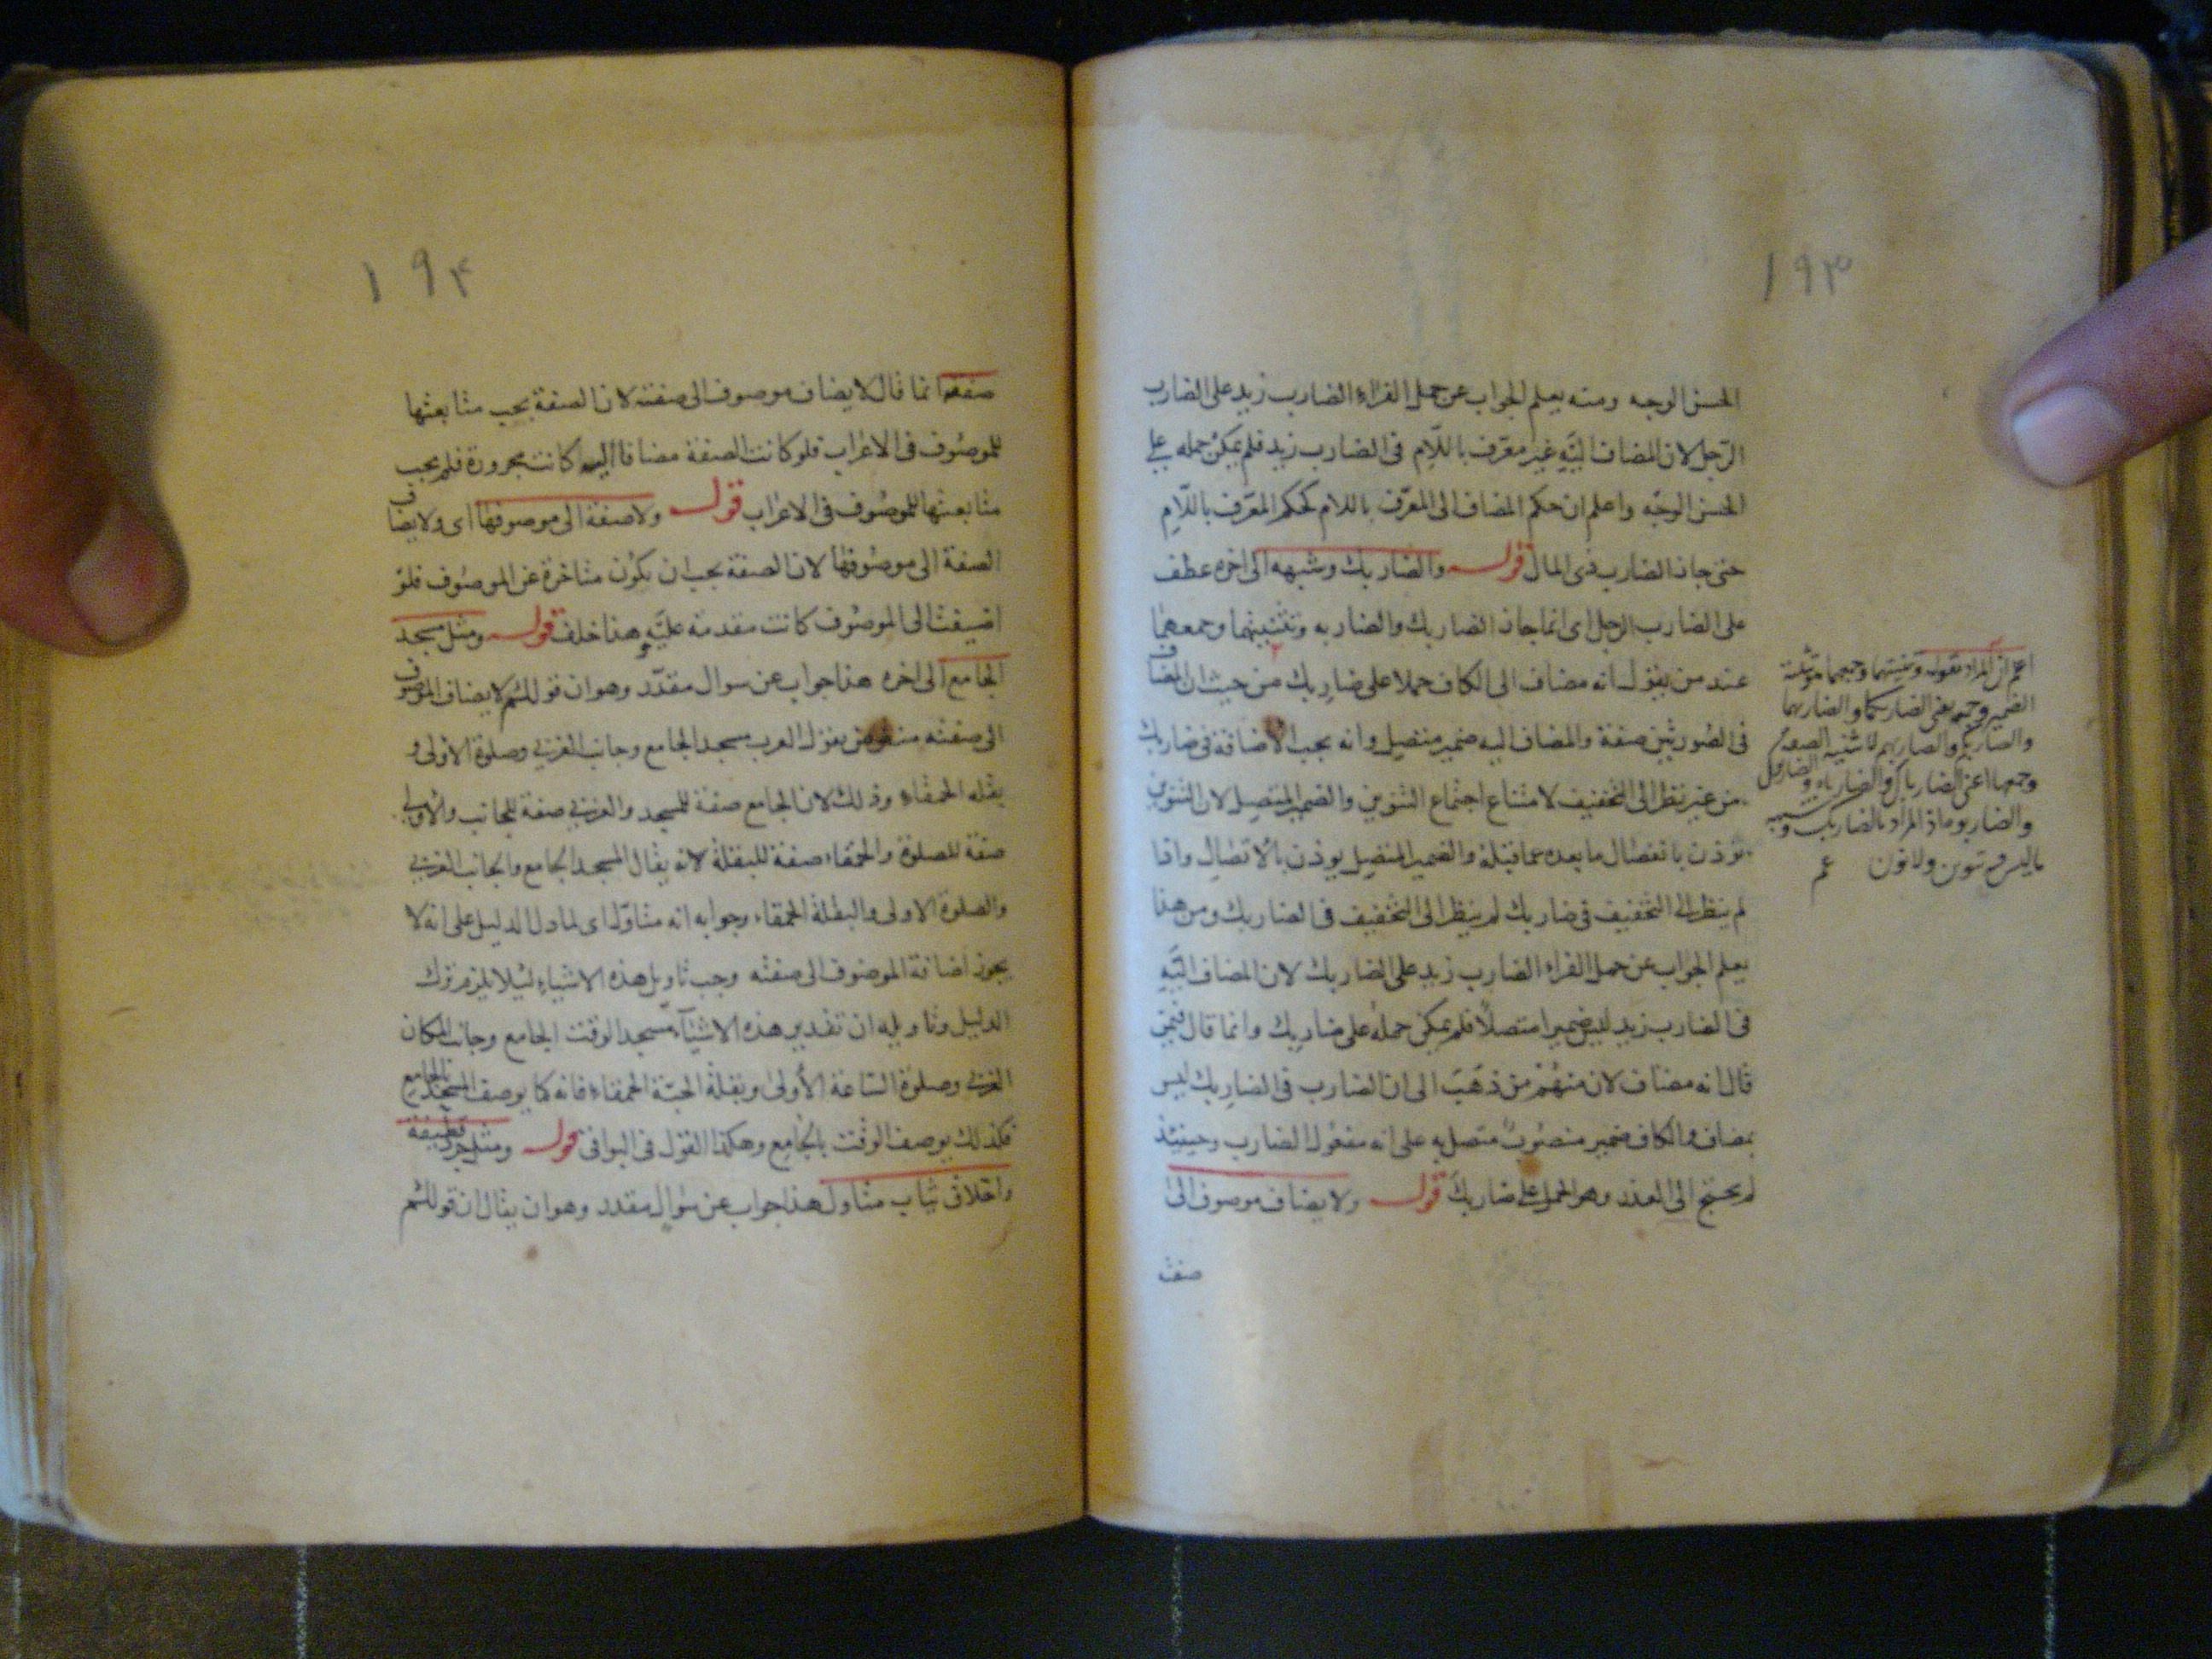 ١٩٣
الحسن الوجه ومنه يعلم الجواب عن حمل الفراء الضارب زيد على الضارب
الرجل لان المضاف اليه غير معرف باللام فى الضارب زيد فلم يمكن حمله على
الحسن الوجه واعلم ان حكم المضاف الى المعرف باللام كحكم المعرف باللام
حتى جاز الضارب ذى المال قوله والضاربك وشبهه الى اخره عطف
على الضارب الرجل اى انما جاز الضاربك والضاربه وتثنيتهما وجمعهما
عند من يقول انه مضاف الى الكاف حملا على ضاربك من حيث ان المضاف
فى الصورتين صفة والمضاف اليه ضمير متصل وانه يجب الاضافة فى ضاربك
من غير نظر الى التخفيف لامتناع اجتماع التنوين والضمير المتصل لان التنوين
توذن بانفصال ما بعده عما قبله والضمير المتصل يوذن بالاتصال واذا
لم ينظر الى التخفيف فى ضاربك لم ينظر الى التخفيف فى الضاربك ومن هذا
يعلم الجواب عن حمل الفراء الضارب زيد على الضاربك لان المضاف اليه
فى الضارب زيد ليس ضميرا متصلا فلم يمكن حمله على ضاربك وانما قال فيمن
قال انه مضاف لان منهم من ذهب الى ان الضارب فى الضاربك ليس
بمضاف والكاف ضمير منصوب متصل به على انه مفعول الضارب وحينئذ
لم يحتج الى العذر وهو الحمل على ضاربك قوله ولا يضاف موصوف الى
صفته
اعلم ان المراد بقوله وتثنيتهما وجمعهما تثنية
الضمير وجمعه اعنى الضاربكما والضاربهما
والضاربكم والضاربهم لا تثنية الصفة
وجمعها اعنى الضارباك والضارباه والضاربوك
والضاربوه اذ المراد بالضاربك وشبهه
ما ليس فيه تنوين ولا نون عم
١٩۴
صفته انما قال لا يضاف موصوف الى صفته لان الصفة يجب متابعتها
للموصوف فى الاعراب فلو كانت الصفة مضافا اليه كانت مجرورة فلم يجب
متابعتها للموصوف فى الاعراب قوله ولا صفة الى موصوفها اى ولا يضاف
الصفة الى موصوفها لان الصفة يجب ان يكون متاخرة عن الموصوف فلو
اضيفت الى الموصوف كانت مقدمة عليه هذا خلف قوله ومثل مسجد
الجامع الى اخره هذا جواب عن سوال مقدر وهو ان قولكم لا يضاف الموصوف
الى صفته منقوض بقول العرب مسجد الجامع وجانب الغربى وصلوة الاولى و
بقلة الحمقاء وذلك لان الجامع صفة للمسجد والغربى صفة للجانب والاولى
صفة للصلوة والحمقاء صفة للبقلة لانه يقال المسجد الجامع والجانب الغربى
والصلوة الاولى والبقلة الحمقاء وجوابه انه متاول اى لما دل الدليل على انه لا
يجوز اضافة الموصوف الى صفته وجب تاويل هذه الاشياء لئلا يلزم ترك
الدليل وتاويله ان تقدير هذه الاشياء مسجد الوقت الجامع وجانب المكان
الغربى وصلوة الساعة الاولى وبقلة الحبة الحمقاء فانه كما يوصف المسجد بالجامع
فكذلك يوصف الوقت بالجامع وهكذا القول فى البواقى قوله ومثل جرد قطيفة
واخلاق ثياب متاول هذا جواب عن سوال مقدر وهو ان يقال ان قولكم